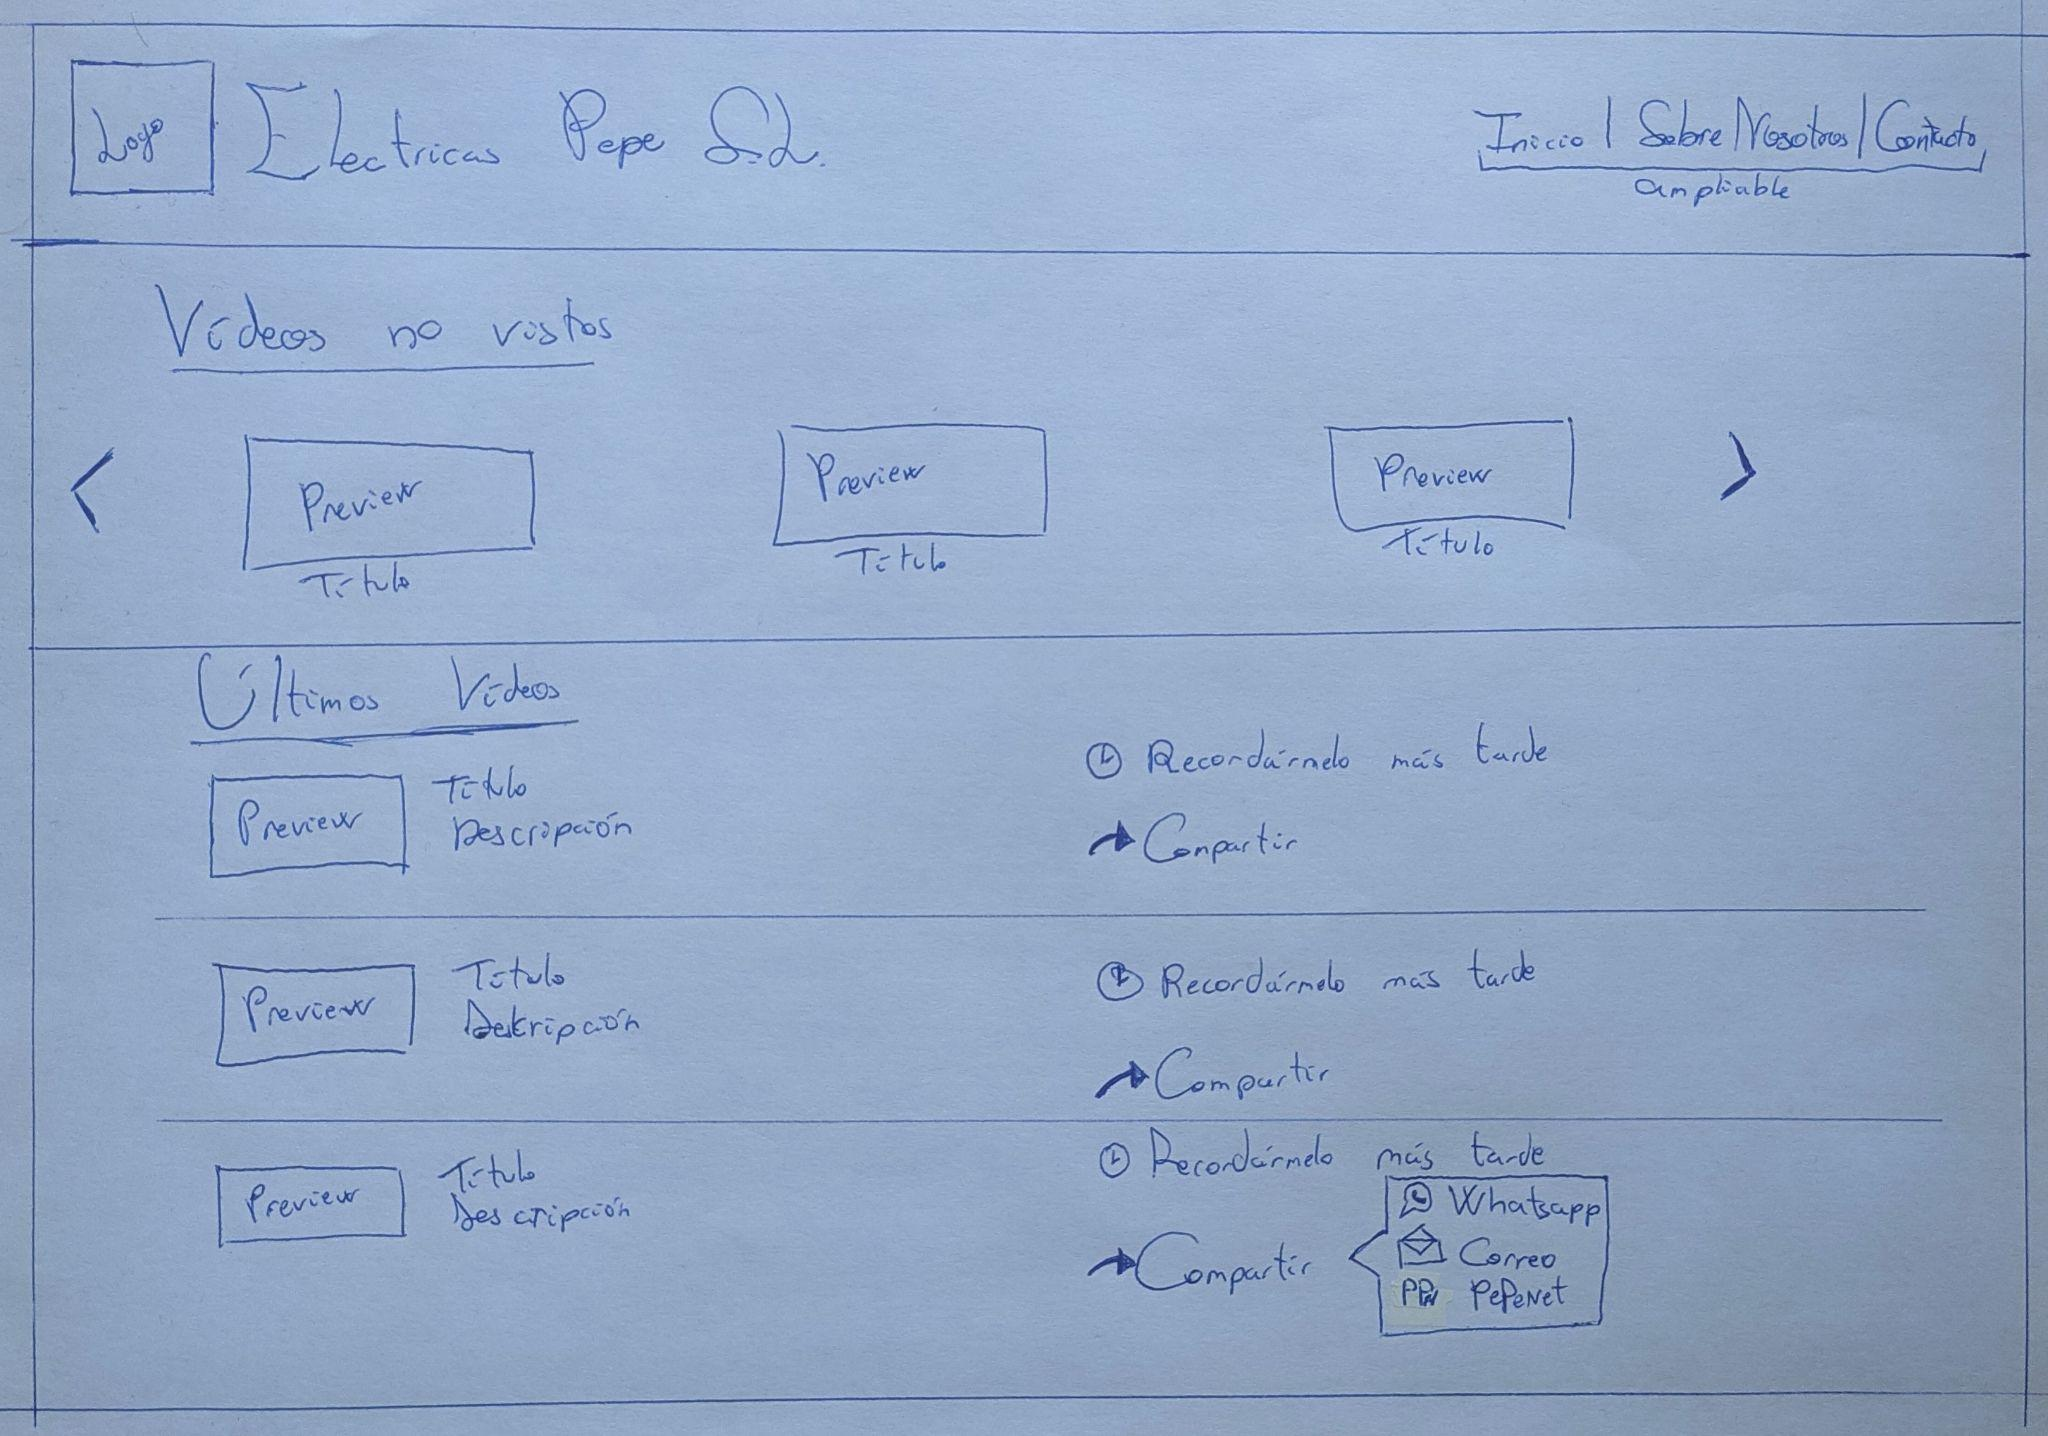 Logo
Electricas Pepe S.L.
Inicio | Sobre Nosotros | Contacto
ampliable
Vídeos no vistos
Preview
Preview
Preview
Título
Título
Título
Últimos Vídeos
Preview
Título
Descripción
Recordármelo más tarde
Compartir
Preview
Título
Descripción
Recordármelo más tarde
Compartir
Preview
Título
Descripción
Recordármelo más tarde
Compartir
Whatsapp
Correo
PPN PePeNet